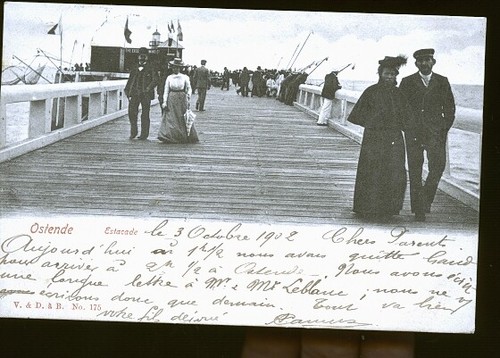 Ostende Estacade le 3 Octobre 1902 Chers Parents
Aujourd'hui à 1h 1/2 nous avons quitté Gand
pour arriver à 2h 1/2 à Ostende. Nous avons écrit
une longue lettre à Mr & Mme Leblanc, nous ne v
écrirons donc que demain. Tout va bien
V. & D. à B. No. 175
votre fils dévoué